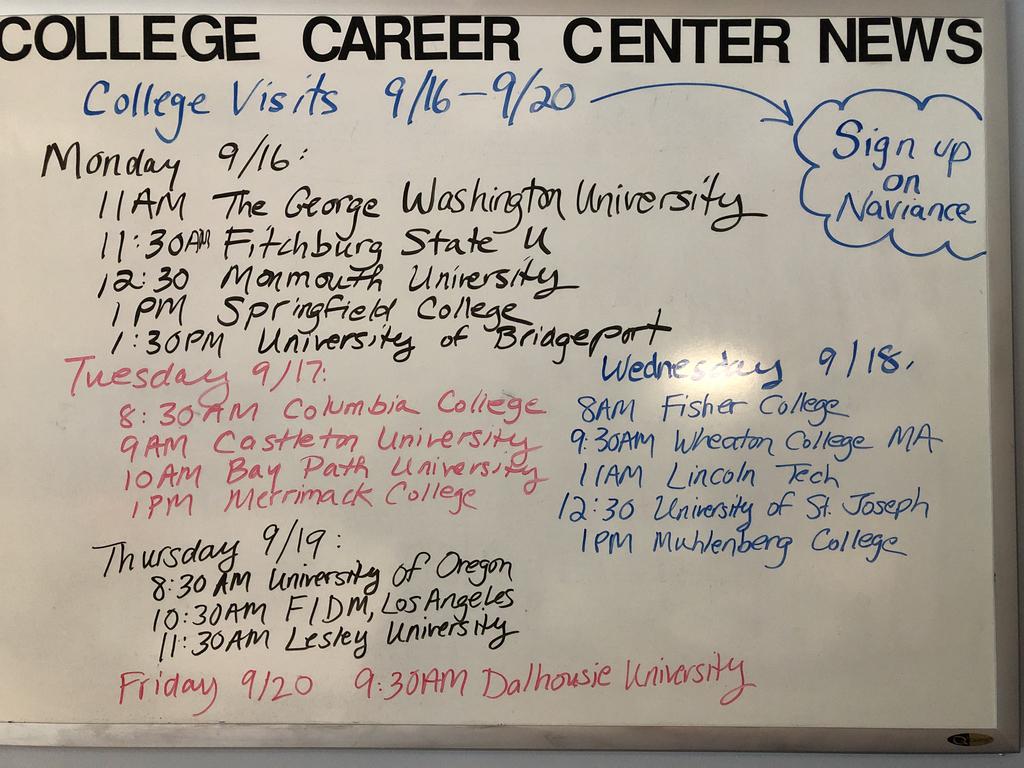 COLLEGE CAREER CENTER NEWS
College Visits 9/16-9/20
Sign up
on
Naviance
Monday 9/16:
11AM The George Washington University
11:30AM Fitchburg State U
12:30 Monmouth University
1 PM Springfield College
1:30PM University of Bridgeport
Tuesday 9/17:
8:30AM Columbia College
9AM Castleton University
10AM Bay Path University
1PM Merrimack College
Wednesday 9/18.
8AM Fisher College
9:30AM Wheaton College MA
11AM Lincoln Tech
12:30 University of St. Joseph
1PM Muhlenberg College
Thursday 9/19:
8:30 AM University of Oregon
10:30AM FIDM, Los Angeles
11:30AM Lesley University
Friday 9/20 9:30AM Dalhousie University